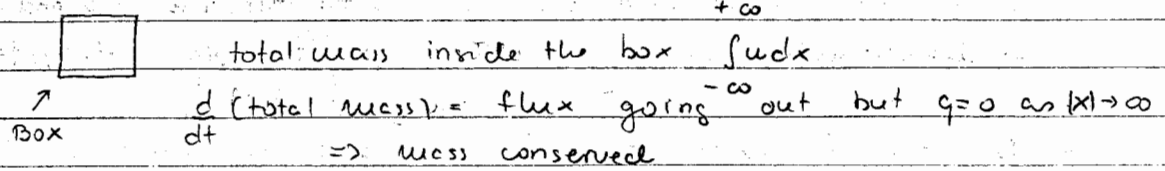 total mass inside the box ∫_{-∞}^{+∞} u dx
d/dt (total mass) = flux going out but q=0 as |x|→∞
Box
=> mass conserved